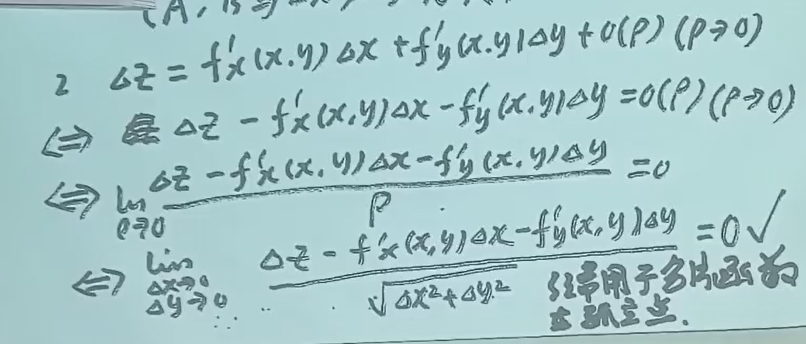 (A,
2 Δz = f'x(x.y)Δx + f'y(x.y)Δy + o(ρ) (ρ→0)
⇔ Δz - f'x(x,y)Δx - f'y(x,y)Δy = o(ρ) (ρ→0)
⇔ lim ρ→0 (Δz - f'x(x,y)Δx - f'y(x,y)Δy) / ρ = 0
⇔ lim Δx→0 Δy→0 (Δz - f'x(x,y)Δx - f'y(x,y)Δy) / √(Δx²+Δy²) = 0 ✓
经常用于分片函数
孤立点.